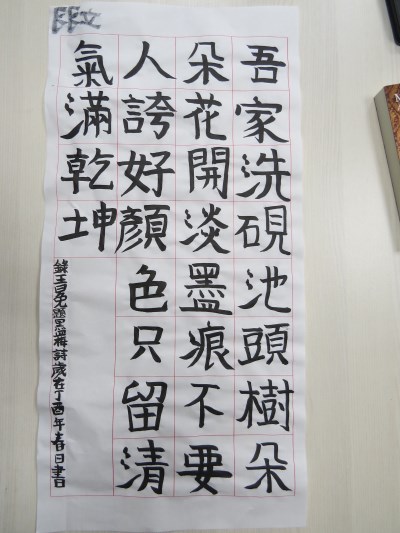 吾家洗硯池頭樹朵
朵花開淡墨痕不要
人誇好顏色只留清
氣滿乾坤
錄王冕墨梅詩歲在丁酉年春日書